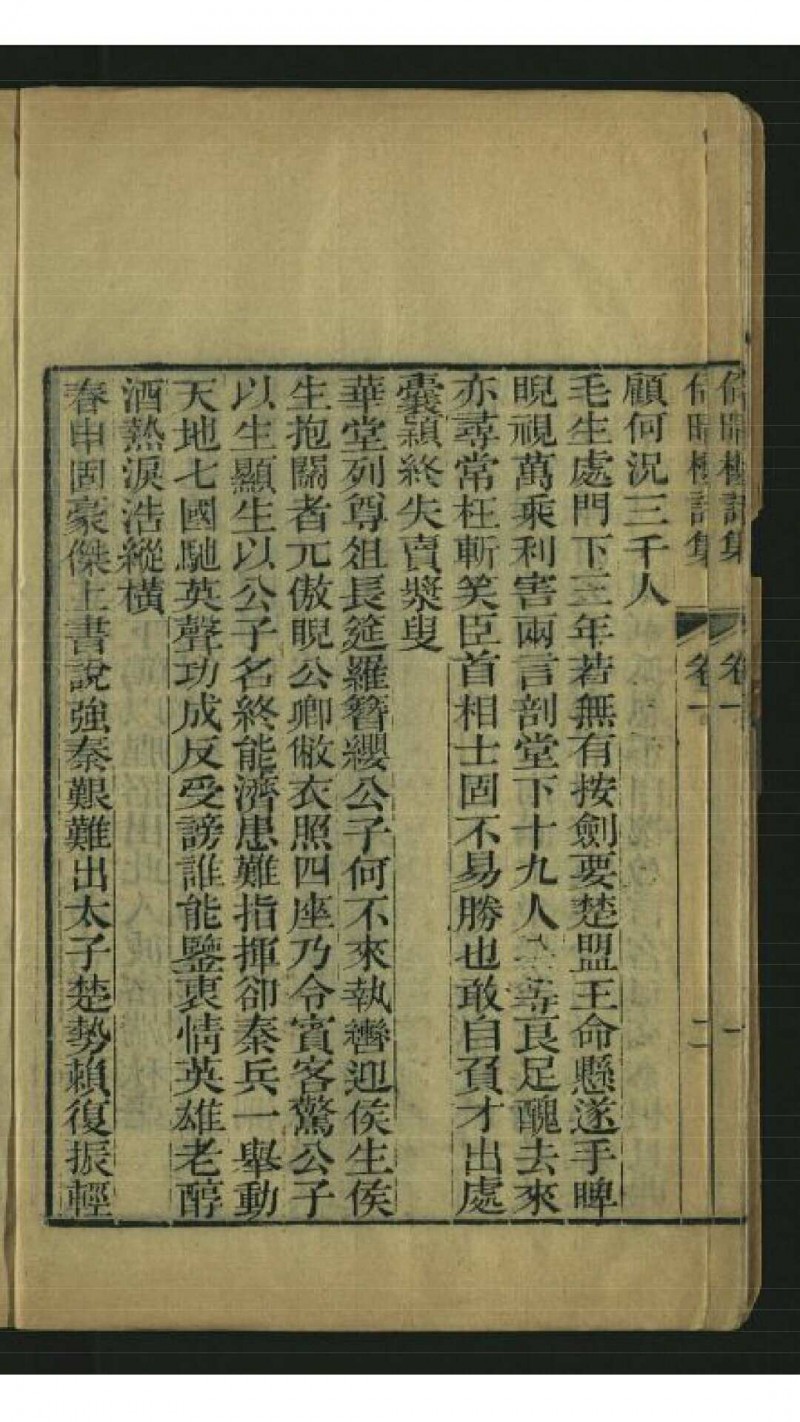 樓詩集 卷一 一
樓詩集 卷一 二
顧何況三千人
毛生處門下三年若無有按劍要楚盟王命懸遂手睥
睨視萬乘利害兩言剖堂下十九人良足醜去來
亦尋常枉斬笑臣首相士固不易勝也敢自負才出處
囊穎終失賣漿叟
華堂列尊俎長筵羅簪纓公子何不來執轡迎侯生侯
生抱關者兀傲睨公卿敝衣照四座乃令賓客驚公子
以生顯生以公子名終能濟患難指揮卻秦兵一舉動
天地七國馳英聲功成反受謗誰能鑒衷情英雄老醇
酒熱淚浩縱橫
春申固豪傑上書說強秦艱難出太子楚勢賴復振輕